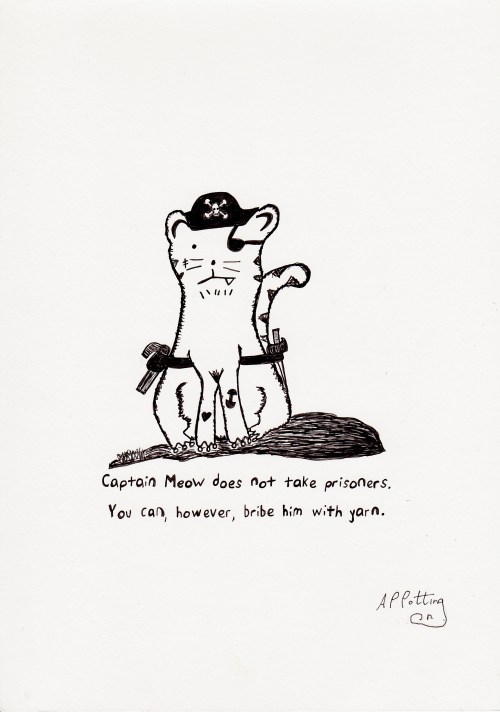 Captain Meow does not take prisoners.
You can, however, bribe him with yarn.
A P Potting